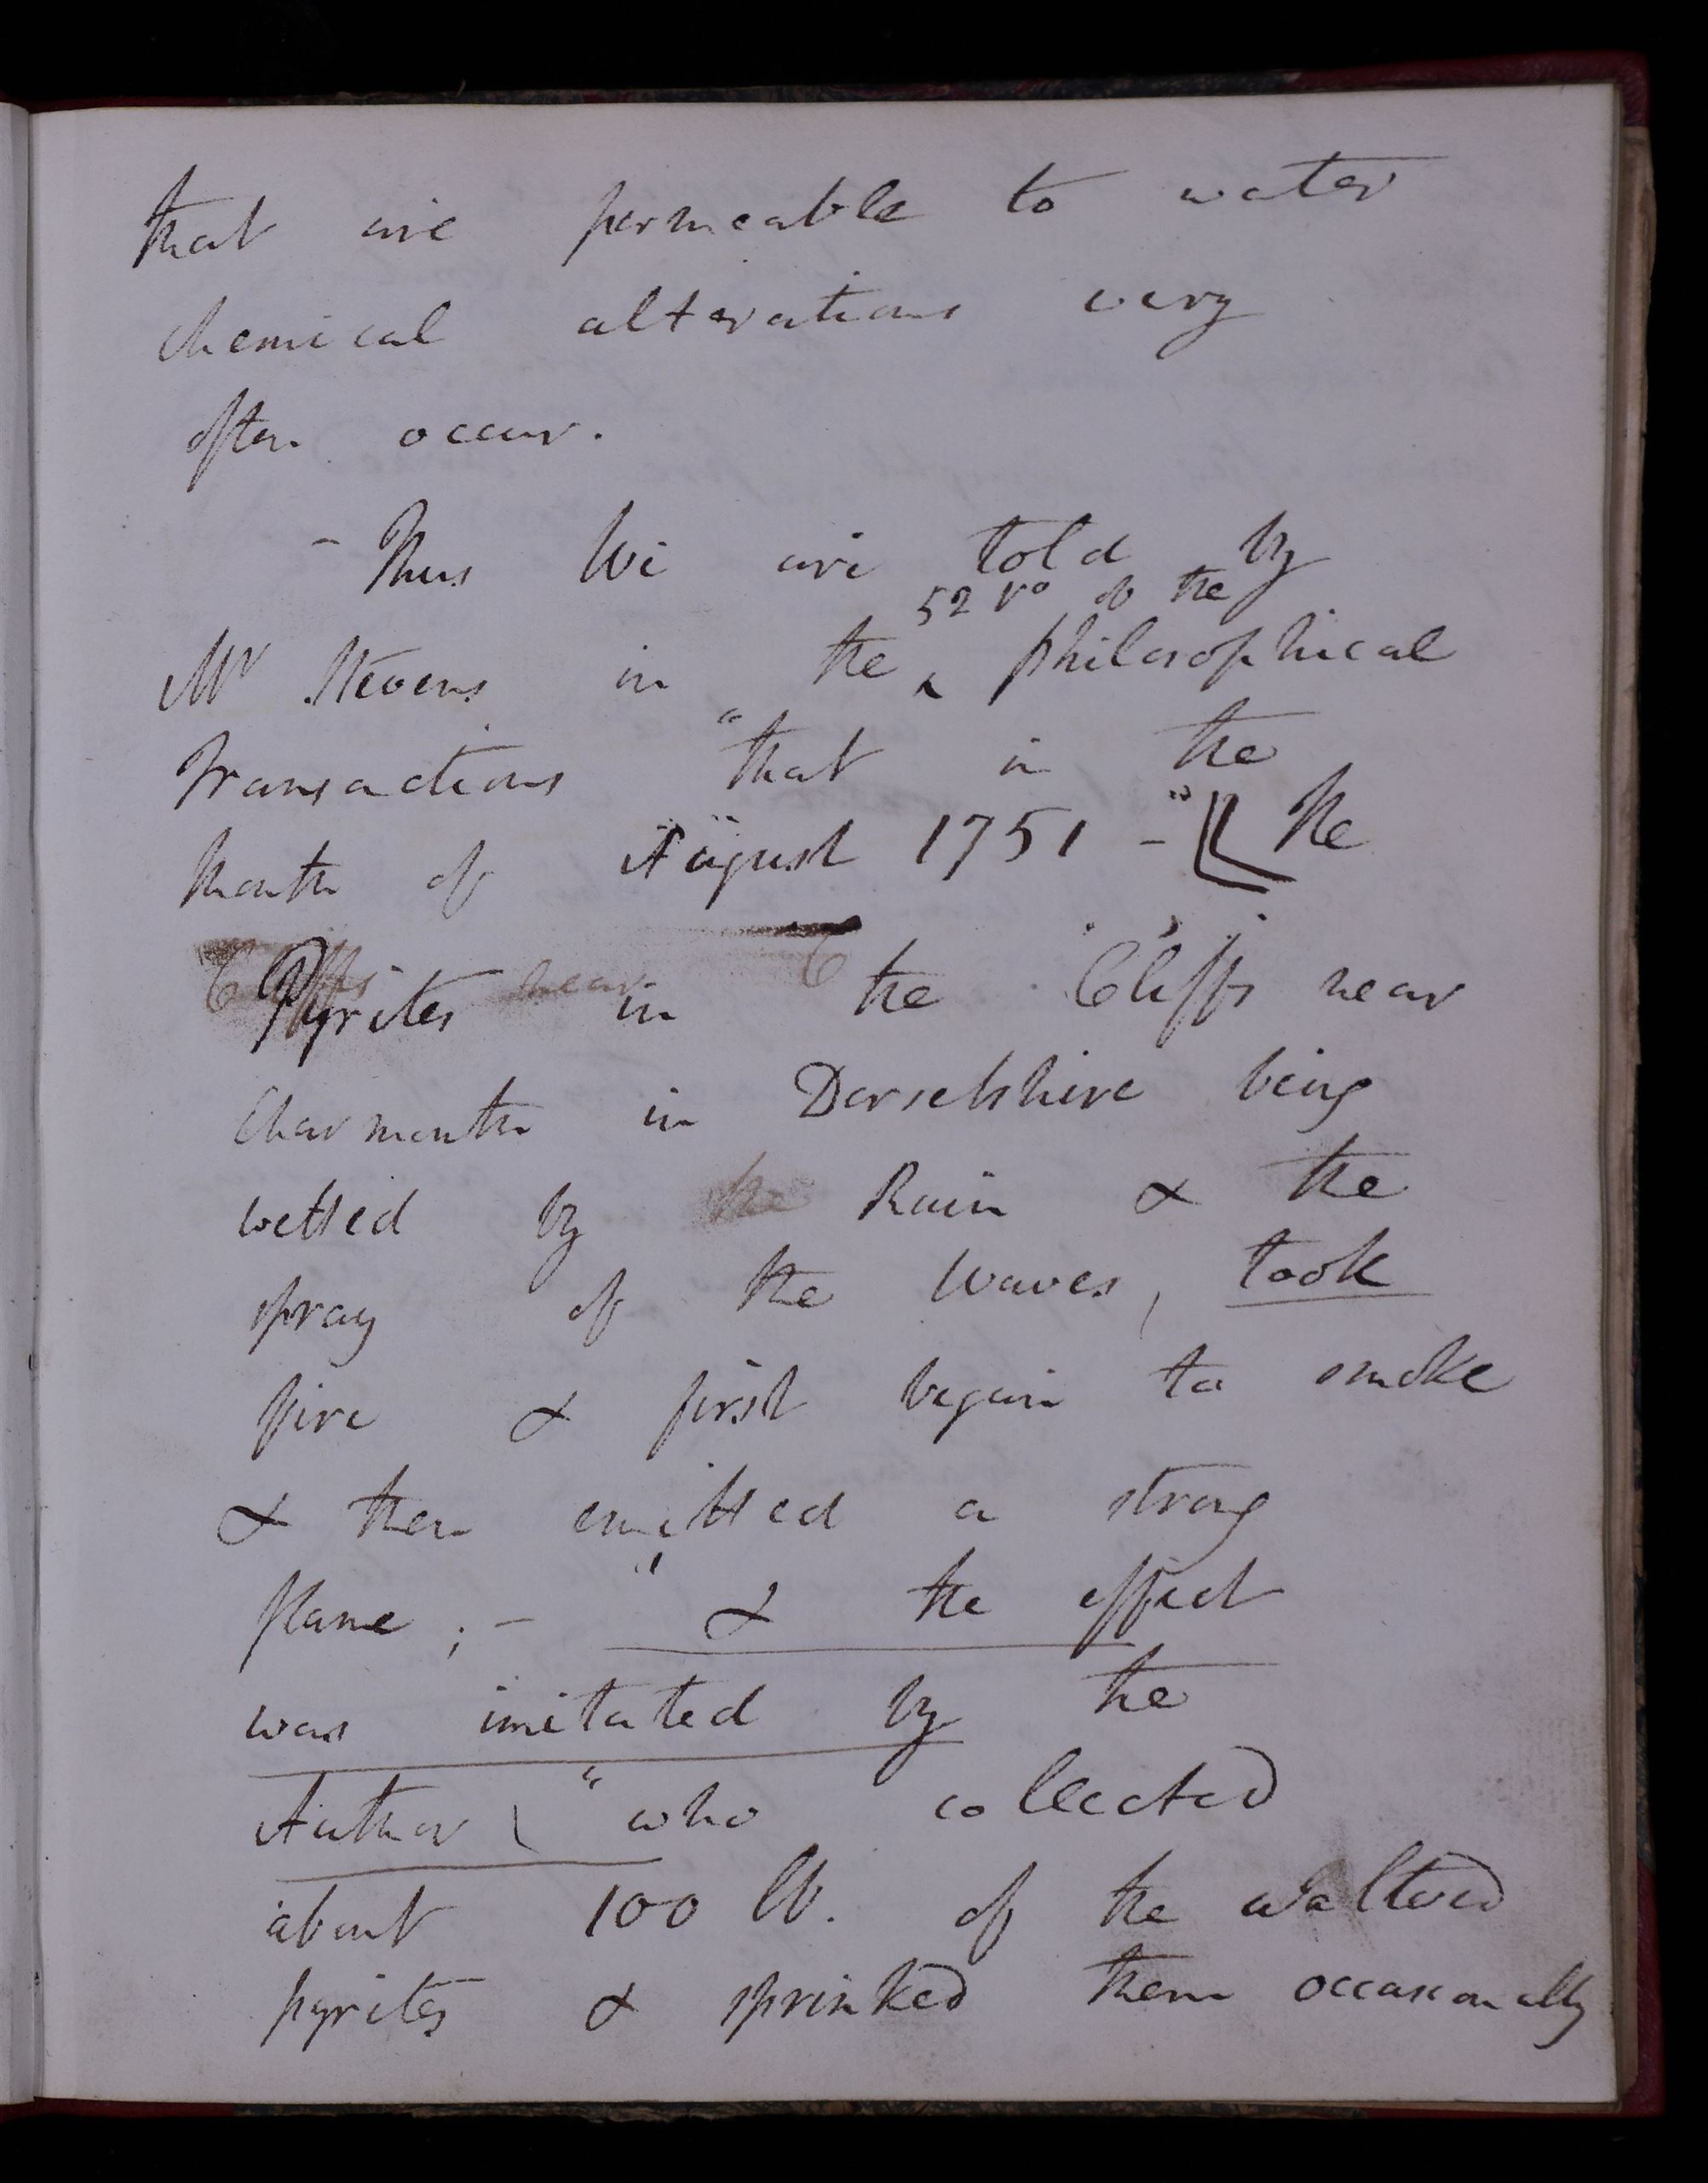 that are permeable to water
chemical alterations very
often occur.
- Thus We are told by
52 Vo of the
Mr Stevens in the ^ philosophical
Transactions "that in the
Month of August 1751 - " the
Pyrites in the Cliffs near
Charmouth in Dorsetshire being
wetted by the Rain & the
spray of the Waves, took
fire & first began to smoke
& then emitted a strong
flame; - " & the effect
was imitated by the
Author \ "who collected
about 100 lb. of the
pyrites & sprinked them occasionally